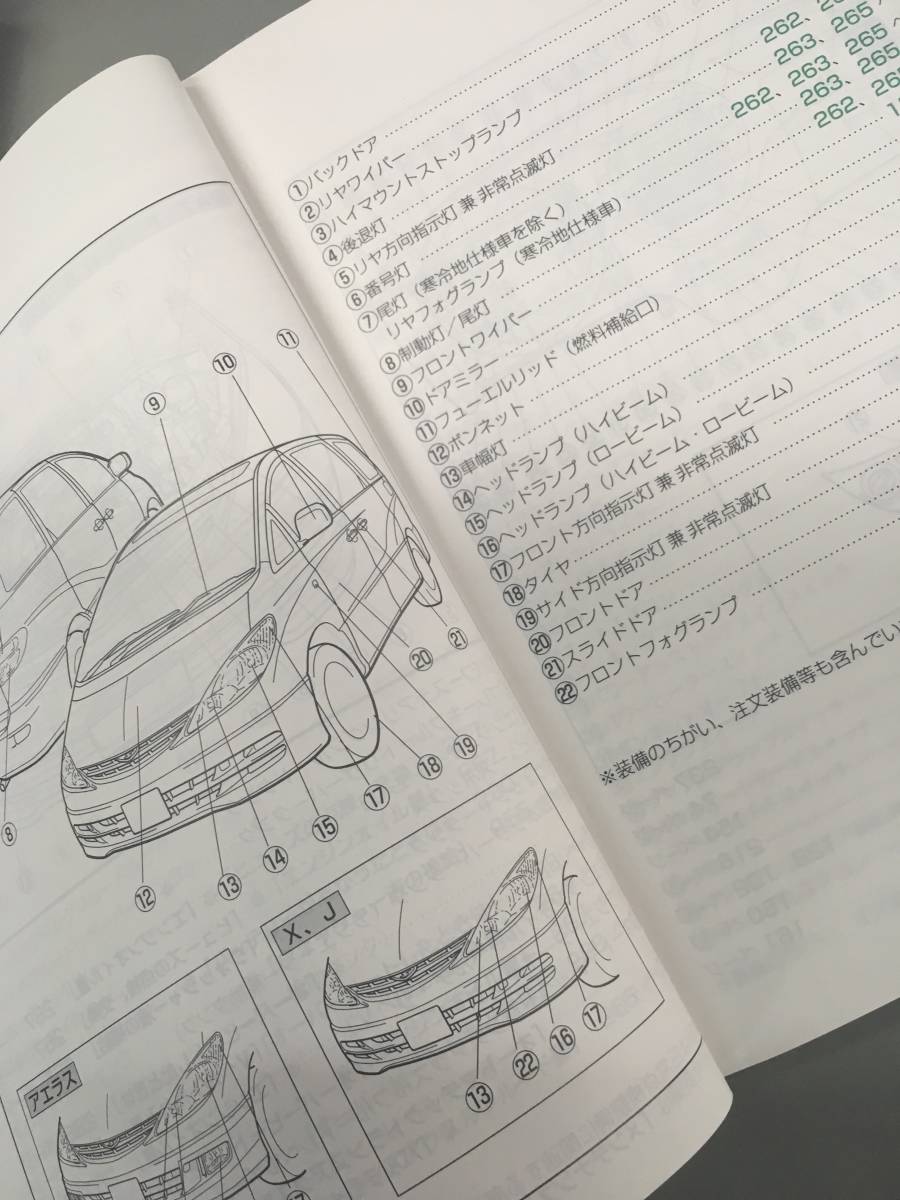 ①バックドア
②リヤワイパー
③ハイマウントストップランプ
④後退灯
⑤リヤ方向指示灯 兼 非常点滅灯
⑥番号灯
⑦尾灯（寒冷地仕様車を除く）
リヤフォグランプ（寒冷地仕様車）
⑧制動灯／尾灯
⑨フロントワイパー
⑩ドアミラー
⑪フューエルリッド（燃料補給口）
⑫ボンネット
⑬車幅灯
⑭ヘッドランプ（ハイビーム）
⑮ヘッドランプ（ロービーム）
⑯ヘッドランプ（ハイビーム　ロービーム）
⑰フロント方向指示灯 兼 非常点滅灯
⑱タイヤ
⑲サイド方向指示灯 兼 非常点滅灯
⑳フロントドア
㉑スライドドア
㉒フロントフォグランプ
※装備のちがい、注文装備等も含んでい
262、
263、265
262、263、265
263、265
262、
⑪
⑩
⑨
⑧
㉑
⑳
⑲
⑱
⑰
⑮
⑭
⑬
⑫
X、J
⑬
㉒
⑯
⑰
アエラス